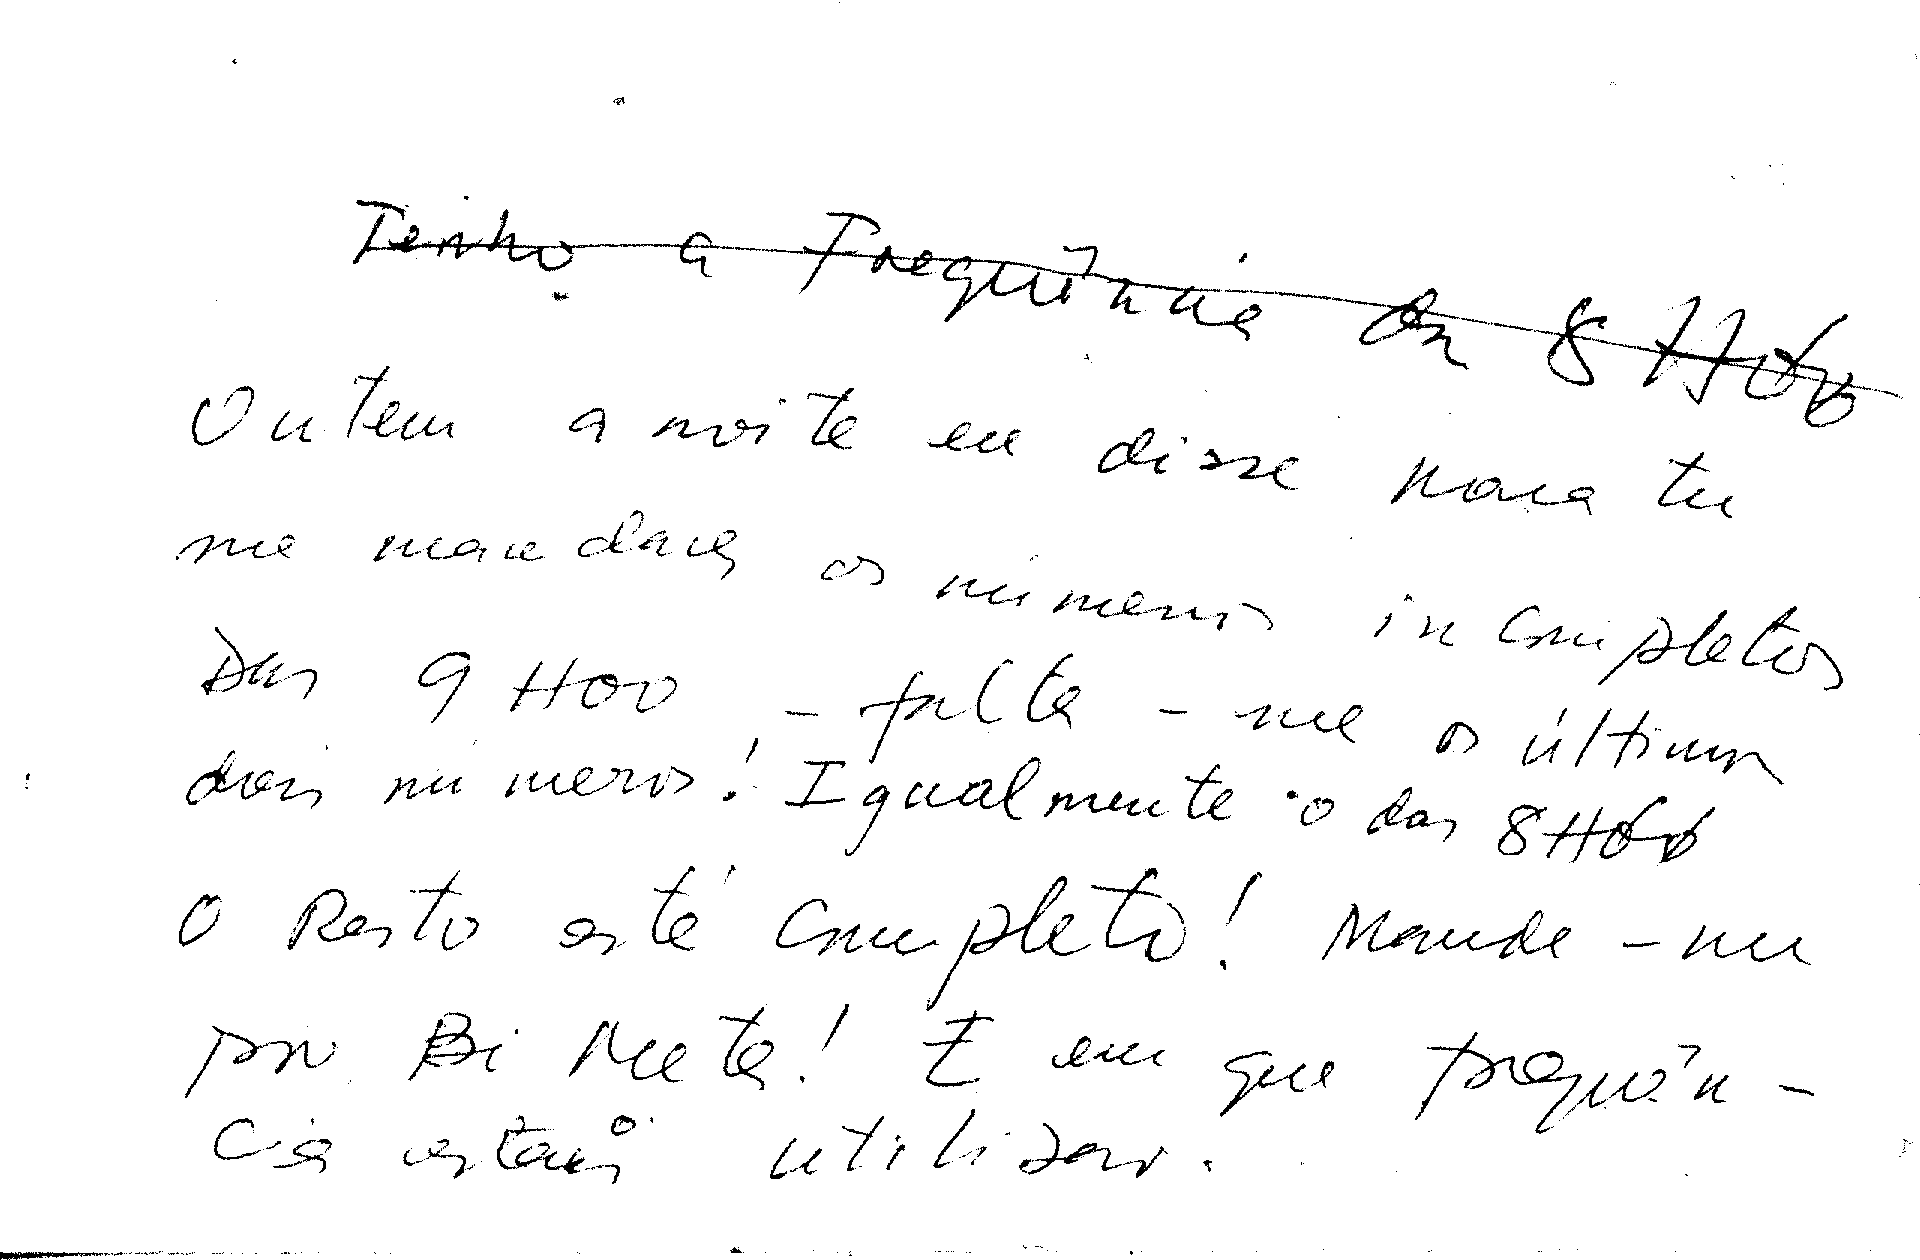 Tenho a Frequência da 8 H00
Ontem a noite eu disse para tu
me mandares os números incompletos
Das 9 H00 - falta - me os últimos
dois números! Igualmente o das 8H00
O Resto está Completo! Mande - me
por Bi Neta! E em que frequên -
cia estais a utilizar.